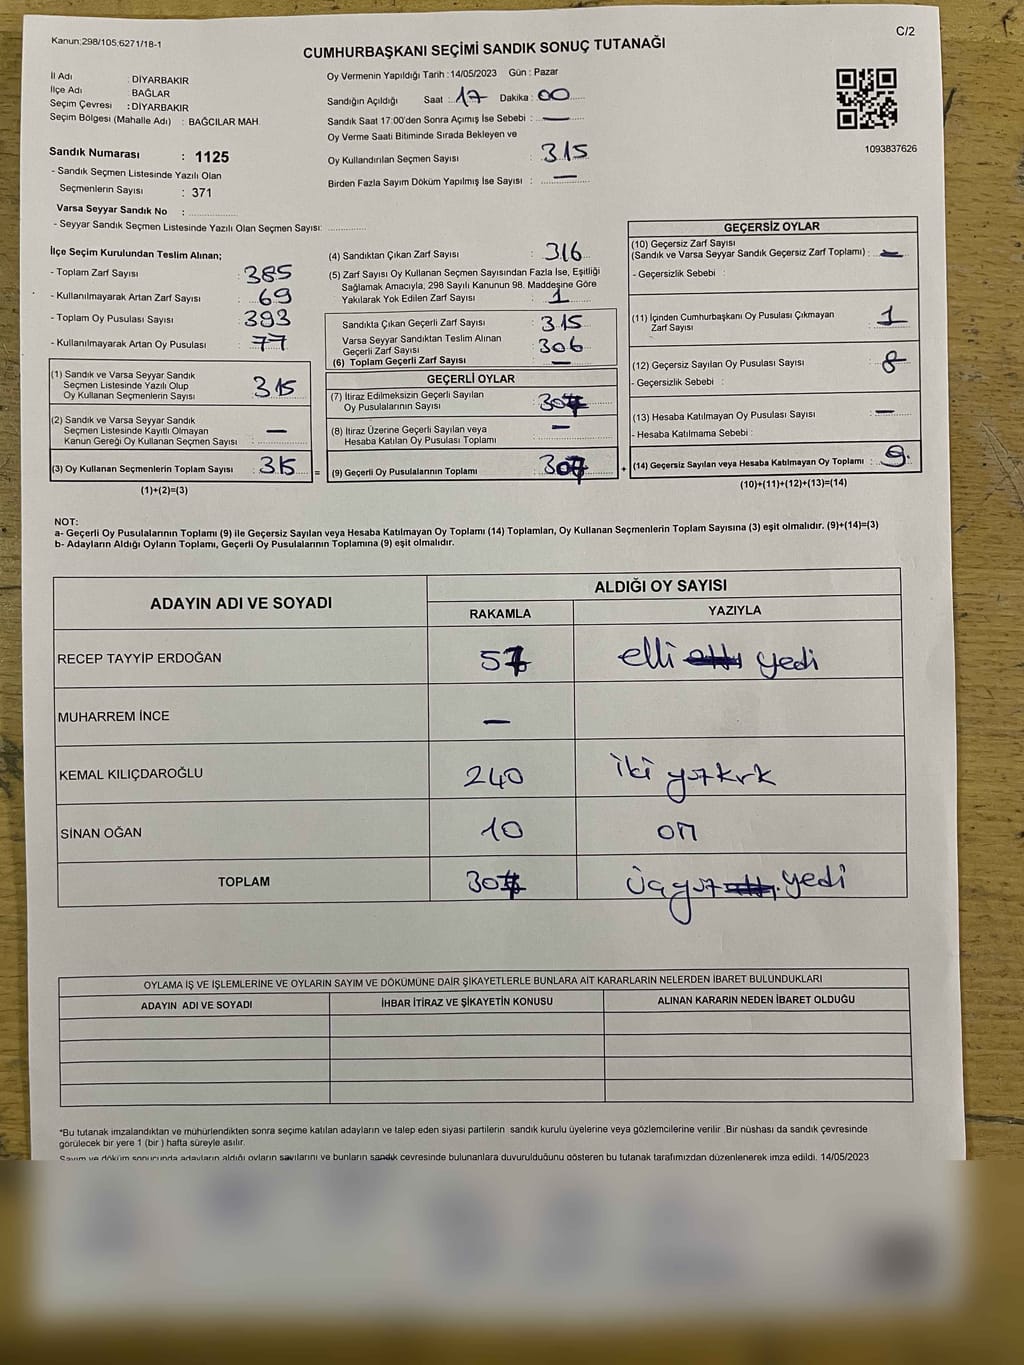 Kanun:298/105,6271/18-1
C/2
CUMHURBAŞKANI SEÇİMİ SANDIK SONUÇ TUTANAĞI
İl Adı : DİYARBAKIR
İlçe Adı : BAĞLAR
Seçim Çevresi : DİYARBAKIR
Seçim Bölgesi (Mahalle Adı) : BAĞCILAR MAH.
Oy Vermenin Yapıldığı Tarih : 14/05/2023 Gün : Pazar
Sandığın Açıldığı Saat : 17 Dakika : 00
Sandık Saat 17:00'den Sonra Açımış İse Sebebi : —
Oy Verme Saati Bitiminde Sırada Bekleyen ve
Oy Kullandırılan Seçmen Sayısı : 315
Birden Fazla Sayım Döküm Yapılmış İse Sayısı : —
1093837626
Sandık Numarası : 1125
- Sandık Seçmen Listesinde Yazılı Olan
Seçmenlerin Sayısı : 371
Varsa Seyyar Sandık No :
- Seyyar Sandık Seçmen Listesinde Yazılı Olan Seçmen Sayısı:
İlçe Seçim Kurulundan Teslim Alınan;
- Toplam Zarf Sayısı : 385
- Kullanılmayarak Artan Zarf Sayısı : 69
- Toplam Oy Pusulası Sayısı : 393
- Kullanılmayarak Artan Oy Pusulası : 77
(1) Sandık ve Varsa Seyyar Sandık
Seçmen Listesinde Yazılı Olup
Oy Kullanan Seçmenlerin Sayısı : 315
(2) Sandık ve Varsa Seyyar Sandık
Seçmen Listesinde Kayıtlı Olmayan
Kanun Gereği Oy Kullanan Seçmen Sayısı : —
(3) Oy Kullanan Seçmenlerin Toplam Sayısı : 315 =
(1)+(2)=(3)
(4) Sandıktan Çıkan Zarf Sayısı : 316
(5) Zarf Sayısı Oy Kullanan Seçmen Sayısından Fazla İse, Eşitliği
Sağlamak Amacıyla, 298 Sayılı Kanunun 98. Maddesine Göre
Yakılarak Yok Edilen Zarf Sayısı : 1
Sandıkta Çıkan Geçerli Zarf Sayısı : 315
Varsa Seyyar Sandıktan Teslim Alınan
Geçerli Zarf Sayısı : 306
(6) Toplam Geçerli Zarf Sayısı : —
GEÇERLİ OYLAR
(7) İtiraz Edilmeksizin Geçerli Sayılan
Oy Pusulalarının Sayısı : 307
(8) İtiraz Üzerine Geçerli Sayılan veya
Hesaba Katılan Oy Pusulası Toplamı : —
(9) Geçerli Oy Pusulalarının Toplamı : 307 +
GEÇERSİZ OYLAR
(10) Geçersiz Zarf Sayısı
(Sandık ve Varsa Seyyar Sandık Geçersiz Zarf Toplamı) : —
- Geçersizlik Sebebi :
(11) İçinden Cumhurbaşkanı Oy Pusulası Çıkmayan
Zarf Sayısı : 1
(12) Geçersiz Sayılan Oy Pusulası Sayısı : 8
- Geçersizlik Sebebi :
(13) Hesaba Katılmayan Oy Pusulası Sayısı : —
- Hesaba Katılmama Sebebi :
(14) Geçersiz Sayılan veya Hesaba Katılmayan Oy Toplamı : 9.
(10)+(11)+(12)+(13)=(14)
NOT:
a- Geçerli Oy Pusulalarının Toplamı (9) ile Geçersiz Sayılan veya Hesaba Katılmayan Oy Toplamı (14) Toplamları, Oy Kullanan Seçmenlerin Toplam Sayısına (3) eşit olmalıdır. (9)+(14)=(3)
b- Adayların Aldığı Oyların Toplamı, Geçerli Oy Pusulalarının Toplamına (9) eşit olmalıdır.
ADAYIN ADI VE SOYADI
ALDIĞI OY SAYISI
RAKAMLA YAZIYLA
RECEP TAYYİP ERDOĞAN 57 elli yedi
MUHARREM İNCE —
KEMAL KILIÇDAROĞLU 240 iki yüz kırk
SİNAN OĞAN 10 on
TOPLAM 307 üçyüz yedi
OYLAMA İŞ VE İŞLEMLERİNE VE OYLARIN SAYIM VE DÖKÜMÜNE DAİR ŞİKAYETLERLE BUNLARA AİT KARARLARIN NELERDEN İBARET BULUNDUKLARI
ADAYIN ADI VE SOYADI İHBAR İTİRAZ VE ŞİKAYETİN KONUSU ALINAN KARARIN NEDEN İBARET OLDUĞU
*Bu tutanak imzalandıktan ve mühürlendikten sonra seçime katılan adayların ve talep eden siyasi partilerin sandık kurulu üyelerine veya gözlemcilerine verilir .Bir nüshası da sandık çevresinde
görülecek bir yere 1 (bir ) hafta süreyle asılır.
Sayım ve döküm sonucunda adayların aldığı oyların sayılarını ve bunların sandık çevresinde bulunanlara duyurulduğunu gösteren bu tutanak tarafımızdan düzenlenerek imza edildi. 14/05/2023